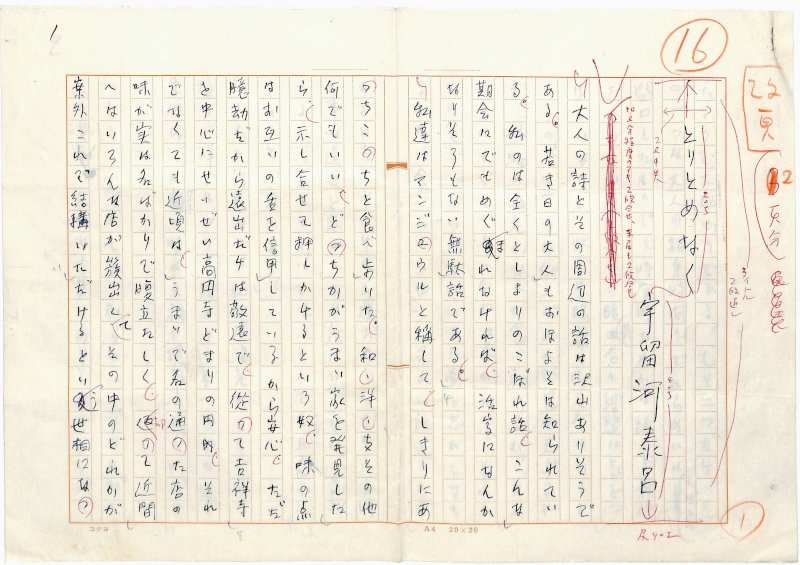 16
改頁
2頁分
とりとめなく
宇留河泰呂
大人の詩とその周辺の話は沢山ありそうで
ある。若き日の大人もおほよそは知られてい
る。私のは全くとしよりのこぼれ話、こんな
期会にでもめぐまれなければ、活字になんか
なりそうもない無駄話である。
私達はマンジェウルと称して、しきりにあ
っちこっちと食べ歩いた。和、洋、支その他
何でもいい、どっちかがうまい家を発見した
ら、示し合せて押しかけるという奴、味の点
はお互いの舌を信用しているから安心、ただ
臆劫だから遠出だけは敬遠で、従って吉祥寺
を中心にせいぜい高円寺どまりの円内、それ
でなくても近頃は、うまいで名の通った店の
味が実は名ばかりで腹立たしく、却って近間
へはいろんな店が簇出して、その中のどれかが
案外これで結構いただけるという世相になっ
コクヨ
A4 20×20
1